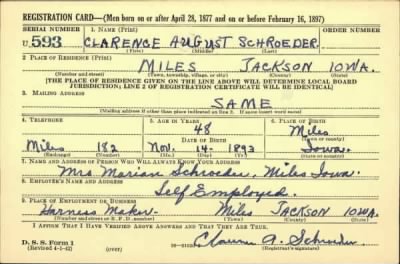 REGISTRATION CARD—(Men born on or after April 28, 1877 and on or before February 16, 1897)
SERIAL NUMBER 1. NAME (Print) ORDER NUMBER
U 593 CLARENCE AUGUST SCHROEDER
(First) (Middle) (Last)
2. PLACE OF RESIDENCE (Print)
MILES JACKSON IOWA.
(Number and street) (Town, township, village, or city) (County) (State)
[THE PLACE OF RESIDENCE GIVEN ON THE LINE ABOVE WILL DETERMINE LOCAL BOARD
JURISDICTION; LINE 2 OF REGISTRATION CERTIFICATE WILL BE IDENTICAL]
3. MAILING ADDRESS
SAME
[Mailing address if other than place indicated on line 2. If same insert word same]
4. TELEPHONE 5. AGE IN YEARS 6. PLACE OF BIRTH
48 Miles
DATE OF BIRTH (Town or county)
Miles 182 Nov. 14- 1893 Iowa.
(Exchange) (Number) (Mo.) (Day) (Yr.) (State or country)
7. NAME AND ADDRESS OF PERSON WHO WILL ALWAYS KNOW YOUR ADDRESS
Mrs Marian Schroeder, Miles Iowa.
8. EMPLOYER'S NAME AND ADDRESS
Self Employed.
9. PLACE OF EMPLOYMENT OR BUSINESS
Harness Maker- Miles JACKSON IOWA.
(Number and street or R. F. D. number) (Town) (County) (State)
I AFFIRM THAT I HAVE VERIFIED ABOVE ANSWERS AND THAT THEY ARE TRUE.
D. S. S. Form 1
(Revised 4-1-42) (over) Clarence A. Schroeder